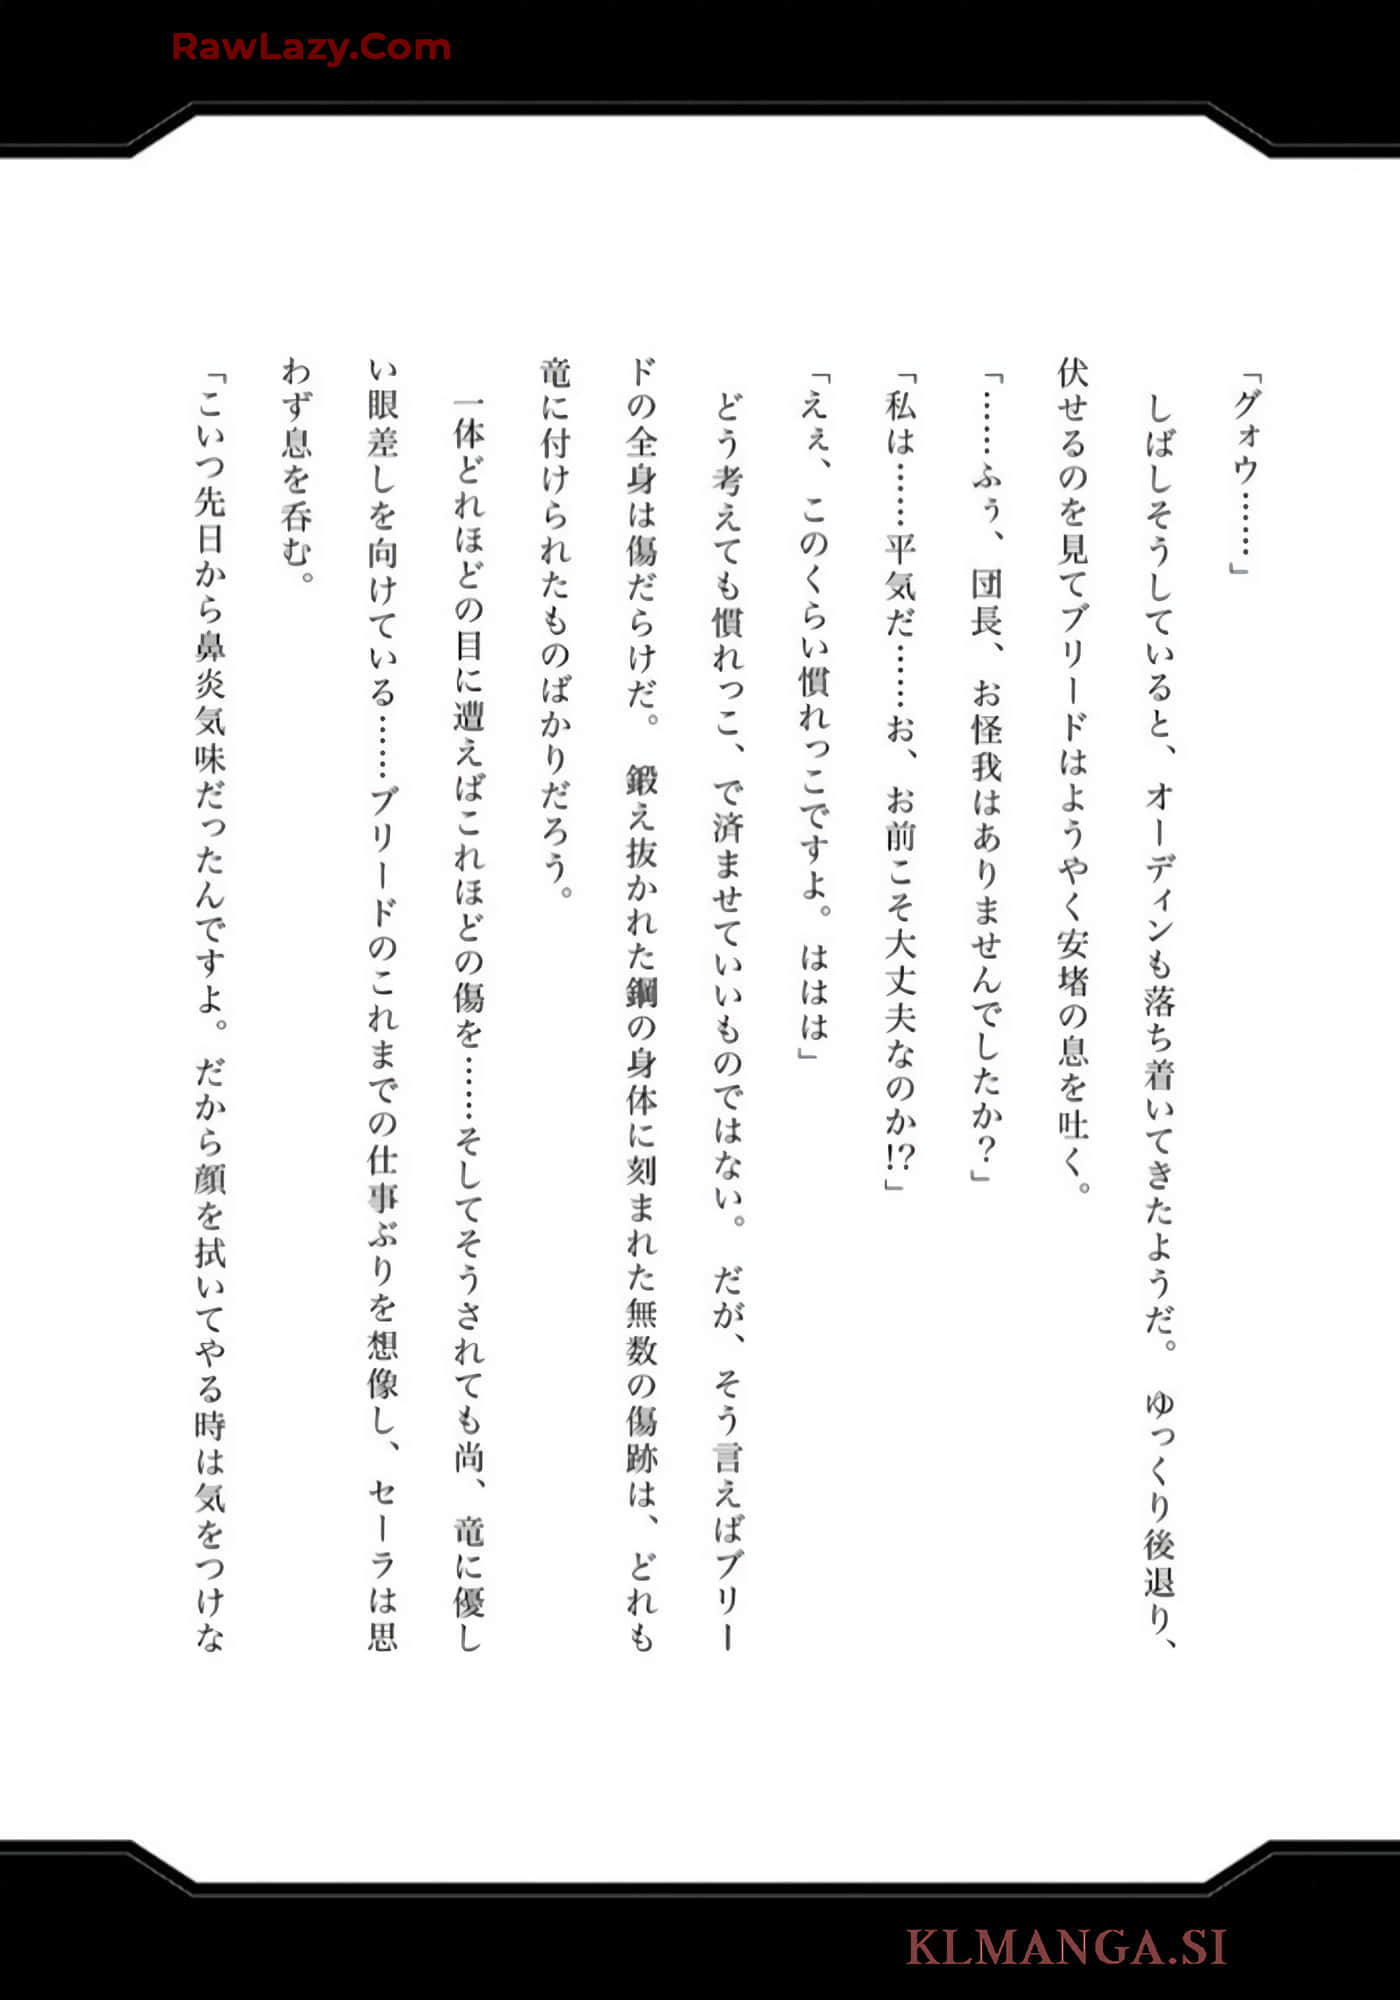 RawLazy.Com
「グォウ……」
しばしそうしていると、オーディンも落ち着いてきたようだ。ゆっくり後退り、
伏せるのを見てブリードはようやく安堵の息を吐く。
「……ふぅ、団長、お怪我はありませんでしたか？」
「私は……平気だ……お、お前こそ大丈夫なのか!?」
「えぇ、このくらい慣れっこですよ。ははは」
どう考えても慣れっこ、で済ませていいものではない。だが、そう言えばブリー
ドの全身は傷だらけだ。鍛え抜かれた鋼の身体に刻まれた無数の傷跡は、どれも
竜に付けられたものばかりだろう。
一体どれほどの目に遭えばこれほどの傷を……そしてそうされても尚、竜に優し
い眼差しを向けている……ブリードのこれまでの仕事ぶりを想像し、セーラは思
わず息を呑む。
「こいつ先日から鼻炎気味だったんですよ。だから顔を拭いてやる時は気をつけな
KLMANGA.SI